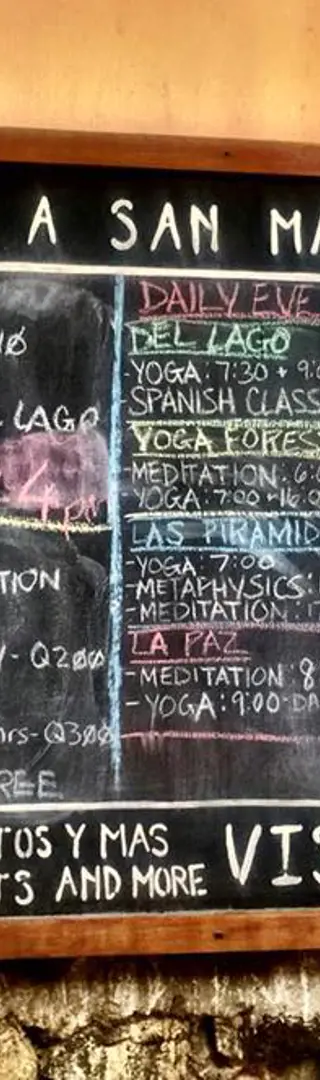 A SAN MA
LAGO
4pm
TION
- Q200
hrs-Q300
REE
DAILY EVE
DEL LAGO
-YOGA: 7:30 + 9:0
-SPANISH CLASS
YOGA FORES
-MEDITATION: 6:
-YOGA: 7:00
LAS PIRAMID
-YOGA: 7:00
-METAPHYSICS:
-MEDITATION:
LA PAZ
-MEDITATION: 8
-YOGA: 9:00-DA
TOS Y MAS
TS AND MORE
VIS